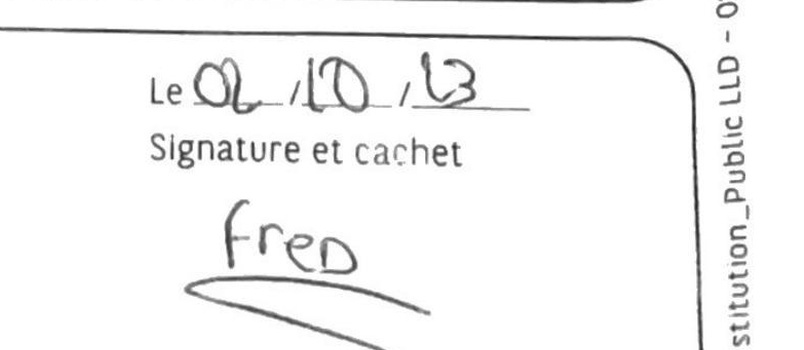 Le 02/10/13
Signature et cachet
FreD
stitution_Public LLD - 0